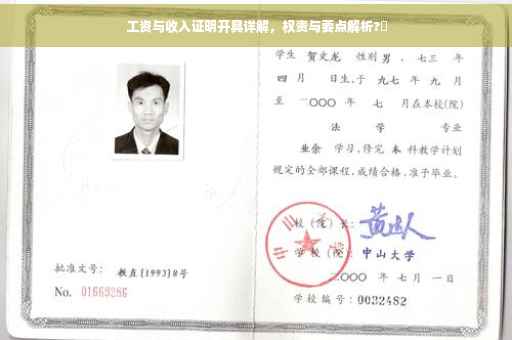 工资与收入证明开具详解，权责与要点解析?
学生 贺文龙 性别 男、七三 年
四 月 日生,于 九七 年 九 月
至 二〇〇〇 年 七 月在本校(院)
法 学 专业
业余 学习,修完 本 科教学计划
规定的全部课程,成绩合格,准予毕业。
校(院)长:
学校(院): 中山大学
二〇〇〇 年 七 月 一 日
学校编号: 0032482
批准文号: 教直(1993)8号
No. 01669286